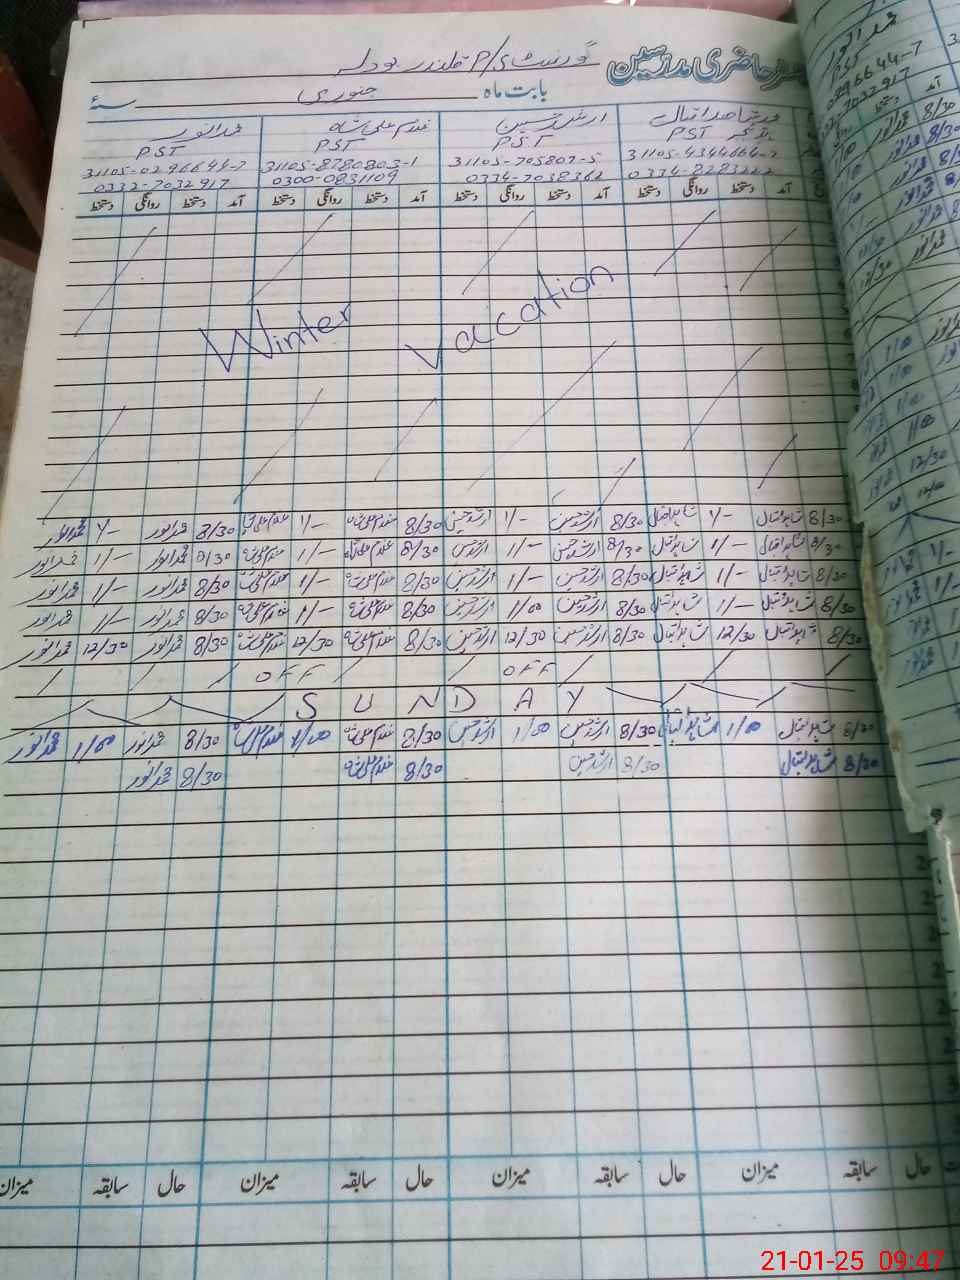 رجسٹر حاضری مدرسین گورنمنٹ P/S قلندر بودلہ
بابت ماہ جنوری سنہ
محمد شاہد اقبال ارشد حسین غلام علی شاہ محمد انور
PST PST PST PST
31105-4344664-7 31105-705807-5 31105-8780803-1 31105-0296644-7
0334-8283222 0334-7038362 0300-0831109 0332-7032917
آمد دستخط روانگی دستخط آمد دستخط روانگی دستخط آمد دستخط روانگی دستخط آمد دستخط روانگی دستخط
Winter Vaccation
8/30 شاہد اقبال 1/- شاہد اقبال 8/30 ارشد حسین 1/- ارشد حسین 8/30 غلام علی شاہ 1/- غلام علی شاہ 8/30 محمد انور 1/- محمد انور
8/30 شاہد اقبال 1/- شاہد اقبال 8/30 ارشد حسین 1/- ارشد حسین 8/30 غلام علی شاہ 1/- غلام علی شاہ 8/30 محمد انور 1/- محمد انور
8/30 شاہد اقبال 1/- شاہد اقبال 8/30 ارشد حسین 1/- ارشد حسین 8/30 غلام علی شاہ 1/- غلام علی شاہ 8/30 محمد انور 1/- محمد انور
8/30 شاہد اقبال 1/- شاہد اقبال 8/30 ارشد حسین 1/00 ارشد حسین 8/30 غلام علی شاہ 1/- غلام علی شاہ 8/30 محمد انور 1/- محمد انور
8/30 شاہد اقبال 12/30 شاہد اقبال 8/30 ارشد حسین 12/30 ارشد حسین 8/30 غلام علی شاہ 12/30 غلام علی شاہ 8/30 محمد انور 12/30 محمد انور
OFF OFF
SUNDAY
8/30 شاہد اقبال 1/00 شاہد اقبال 8/30 ارشد حسین 1/00 ارشد حسین 8/30 غلام علی شاہ 1/00 غلام علی شاہ 8/30 محمد انور 1/00 محمد انور
8/30 شاہد اقبال 8/30 ارشد حسین 8/30 غلام علی شاہ 8/30 محمد انور
حال سابقہ میزان حال سابقہ میزان حال سابقہ میزان حال سابقہ میزان
21-01-25 09:47